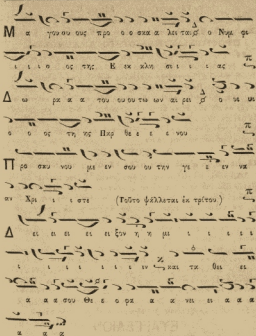 Μ α γου σου ους προ ο σκα α λει ται ο Νυμ φι
ι ι ι ο ος της Ε εκ κλη σι ι ι ας
Δ ω ρα α α του ου ου τω ων αι ρει ο υι
ο ος τη ης Παρ θε ε ε νου
Π ρα σου νου μεν σου ου την γε ε εν να
αν Χρι ι ι στε (Τοῦτο ψάλλεται ἐκ τρίτου.)
Δ ει ει ει ει ει ξον η η μι ι ι ι ι
ι ι ι ι ι ι ιν και τα θει ει
α α α σου Θε ε ο φα α α νει ει α α α
α α α